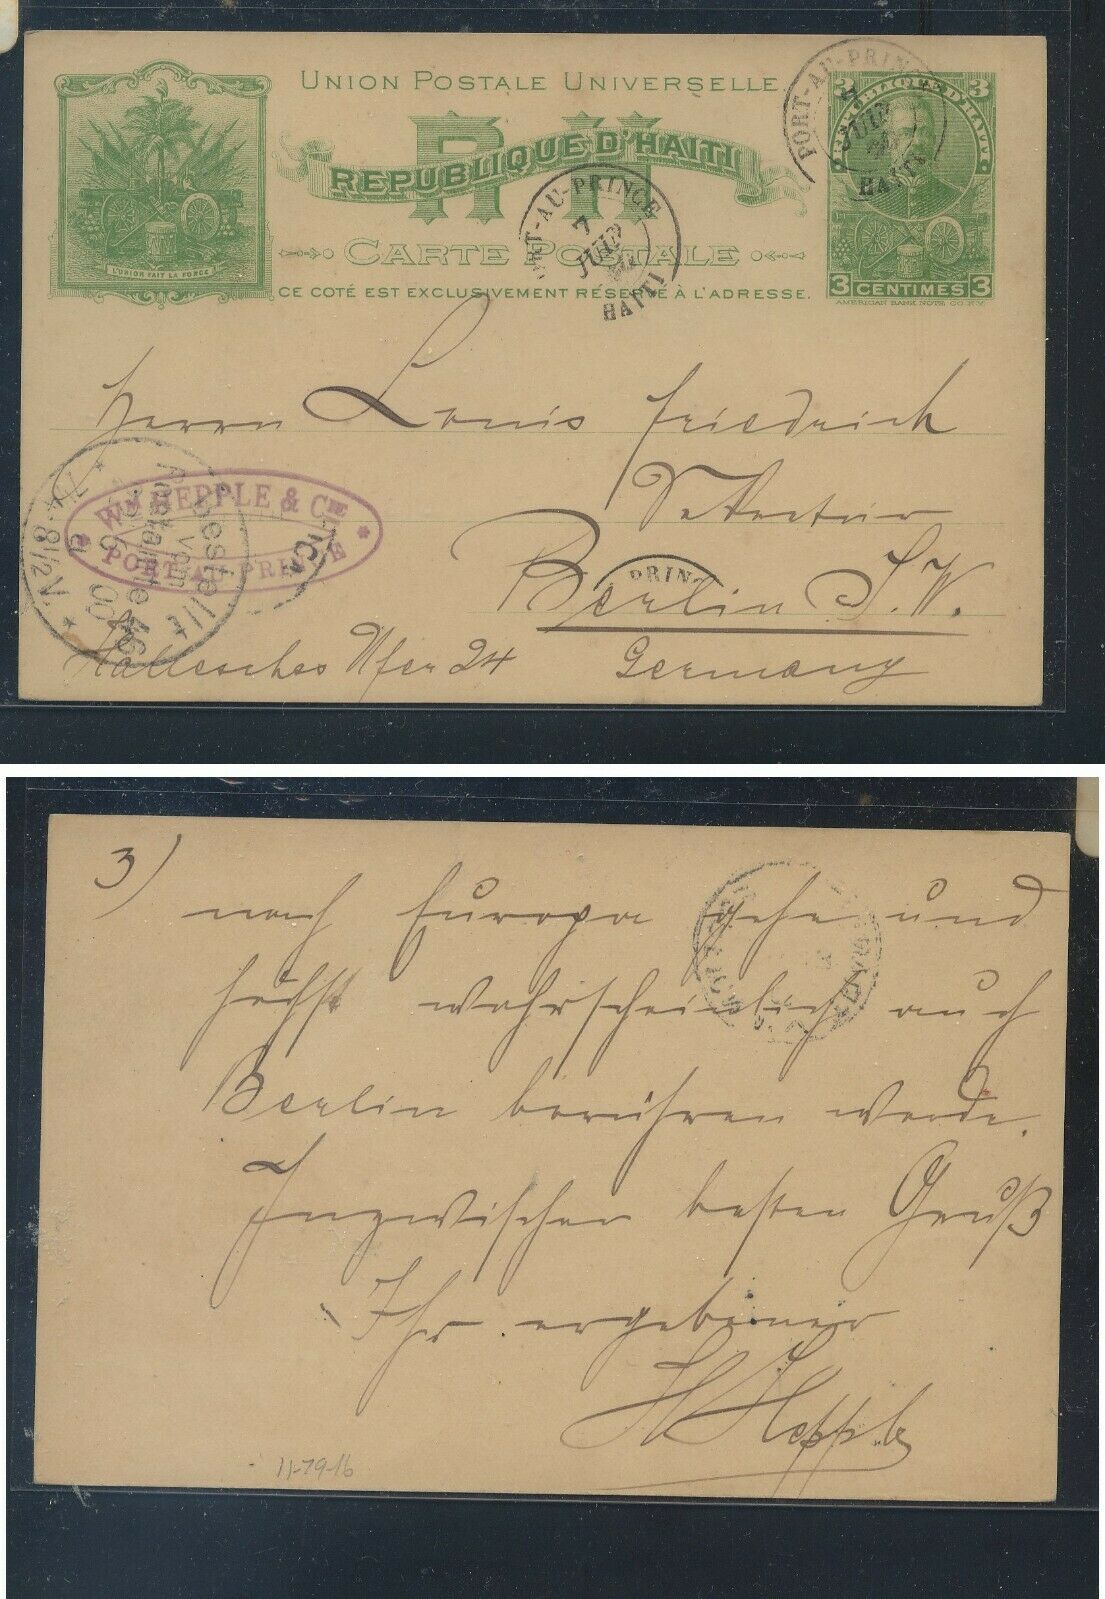 UNION POSTALE UNIVERSELLE
RH
REPUBLIQUE D'HAITI
CARTE POSTALE
CE COTÉ EST EXCLUSIVEMENT RÉSERVÉ À L'ADRESSE.
L'UNION FAIT LA FORCE
3 3
3 CENTIMES 3
AMERICAN BANK NOTE CO. N.Y.
PORT-AU-PRINCE
JUIN
HAITI
PORT-AU-PRINCE
7
JUIN
HAITI
Herrn Louis Friedrich
Sekretär
Berlin S.W.
PRINC
Hallesches Ufer 24 Germany
WM HEPPLE & CIE
PORT-AU-PRINCE
Bestellt
vom
Postamte 46
7/4-8 1/2 N.
3)
nach Europa gehe und
höchst wahrscheinlich auch
Berlin berühren werde.
Inzwischen besten Gruß
Ihr ergebener
H Hepple
11-79-16